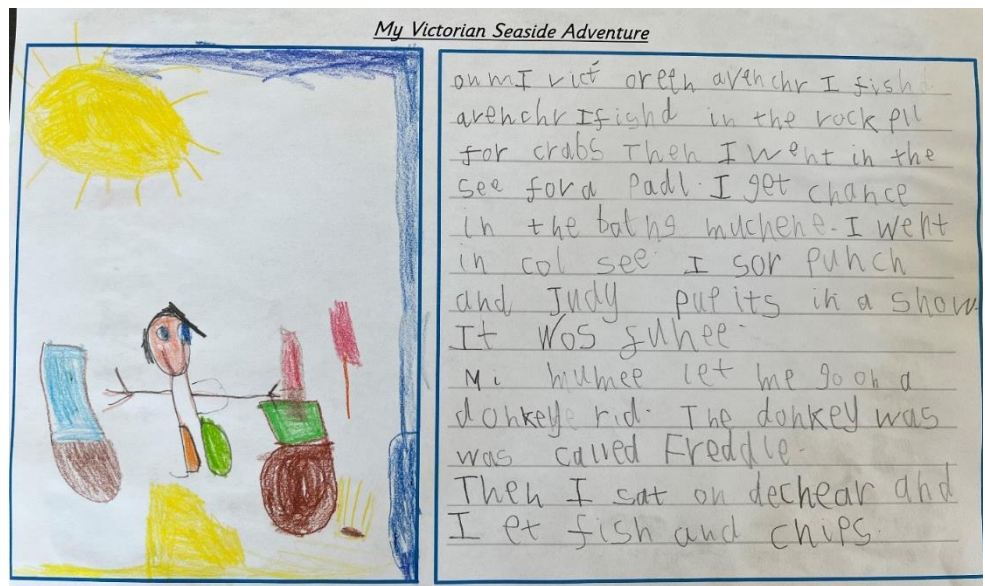 My Victorian Seaside Adventure
on mI vict oreen avenchr I fish
avenchr I fishd in the rock pll
for crabs Then I went in the
see for a Padl. I get chance
in the bathg muchene. I went
in col see. I sor Punch
and Judy pupits in a show.
It Wos funee.
Mi mumee let me go on a
donkeye rid. The donkey was
was called Freddie.
Then I sat on dechear and
I et fish and chips.